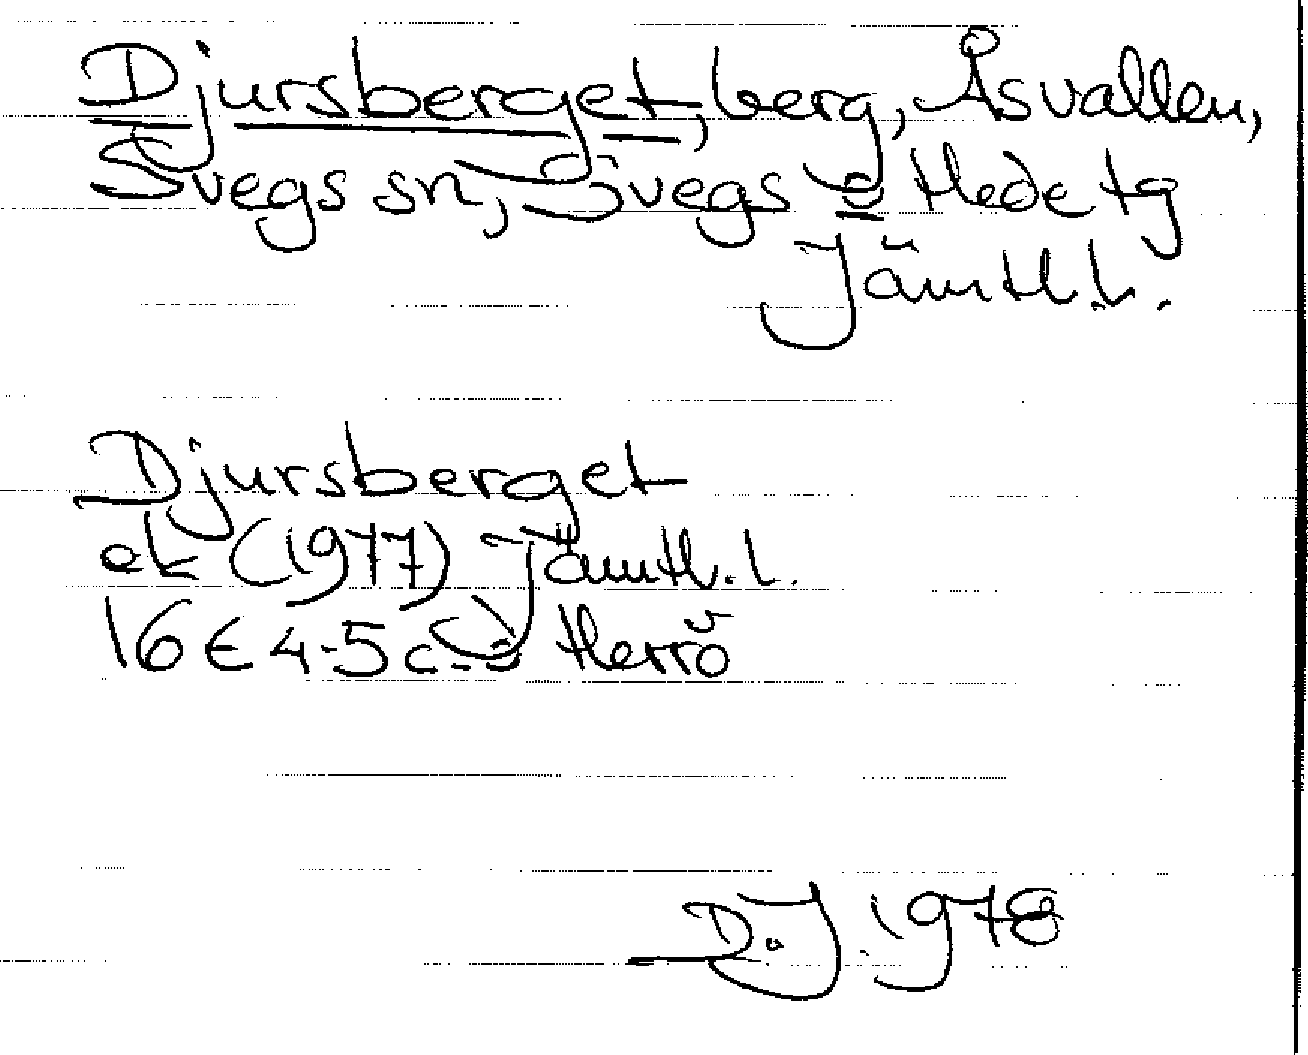 Djursberget, berg, Åsvallen,
Svegs sn, Svegs o Hede tg
Jämtl.l.
Djursberget
ek (1977) Jämtl.l.
16E 4-5 c-d Herrö
D.J. 1978